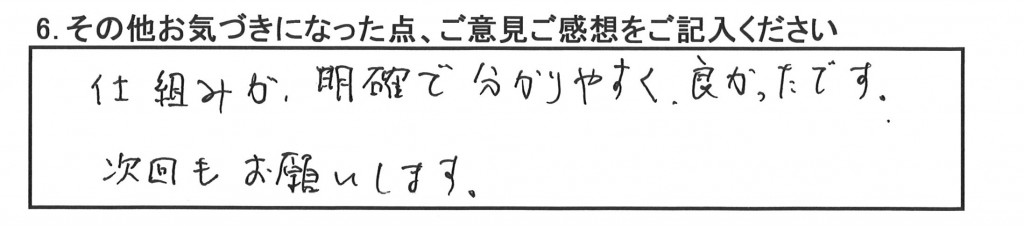 6.その他お気づきになった点、ご意見ご感想をご記入ください
仕組みが、明確で分かりやすく、良かったです。
次回もお願いします。